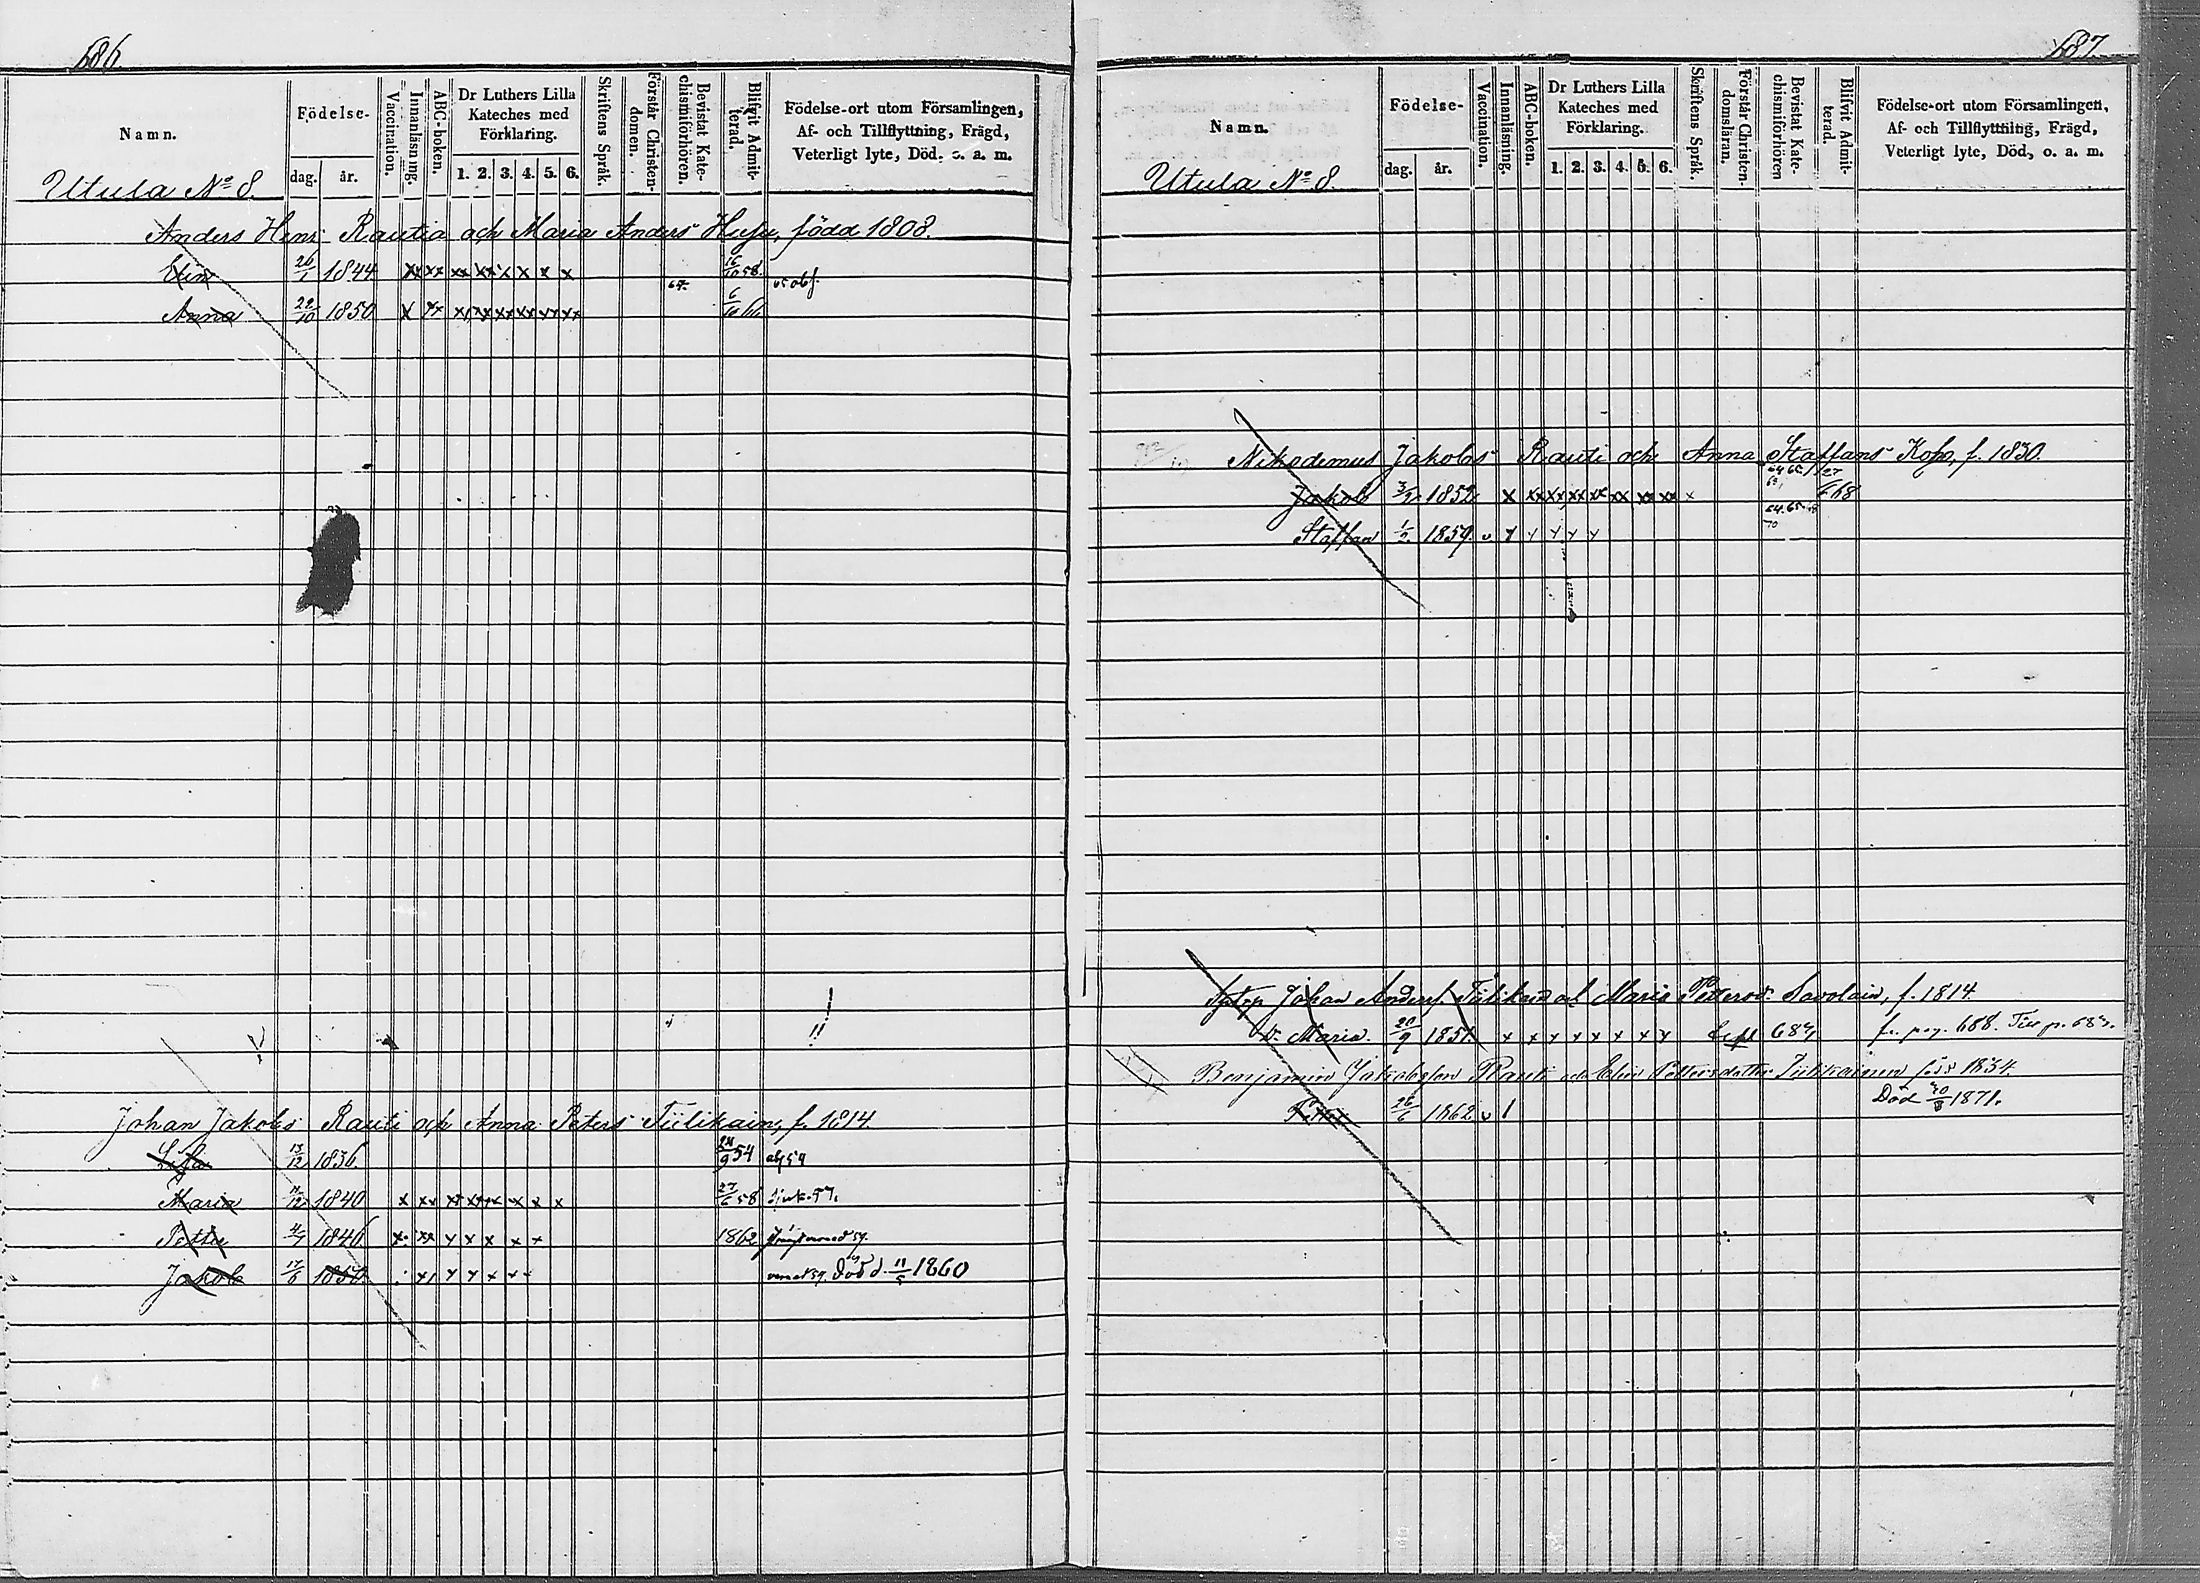 686.
Namn.
Födelse-
dag. år.
Vaccination.
Innanläsning.
ABC-boken.
Dr Luthers Lilla
Kateches med
Förklaring.
1. 2. 3. 4. 5. 6.
Skriftens Språk.
Förstår Christen-
domen.
Bevistat Kate-
chismiförhören.
Blifvit Admit-
terad.
Födelse-ort utom Församlingen,
Af- och Tillflyttning, Frägd,
Veterligt lyte, Död. o. a. m.
Utula No 8.
Anders Henr Rautia och Maria Anders Husu, född 1808.
Elin 26/1 1844 x xx xx xx x x x x 16/10 58.
Anna 22/10 1850 x xx xx xx xx xx xx xx 6/10 66
Johan Jakobs Rauti och Anna Peters Tiilikain, f. 1814.
Lisa 13/12 1836 24/9 54
Maria 11/12 1840 x xx xx xx x x x x 27/6 58 sjuk. 57.
Petter 4/7 1846 x xx x x x x x 1862
Jakob 17/6 1850 x x x x x Död d. 11/5 1860
687.
Namn.
Födelse-
dag. år.
Vaccination.
Innanläsning.
ABC-boken.
Dr Luthers Lilla
Kateches med
Förklaring.
1. 2. 3. 4. 5. 6.
Skriftens Språk.
Förstår Christen-
domsläran.
Bevistat Kate-
chismiförhören
Blifvit Admit-
terad.
Födelse-ort utom Församlingen,
Af- och Tillflyttning, Frägd,
Veterligt lyte, Död, o. a. m.
Utula No 8.
Nikodemus Jakobs Rauti och Anna Staffans Kopo, f. 1830.
Jakob 3/2 1852 x xx xx xx xx xx xx xx x 27/6 68
Staffan 1/2 1859 v x x x x x
Johan Anderss Tiilikain och Maria Pettersd. Savolain, f. 1814.
D. Maria. 20/9 1851. x x x x x x x x 687 fr. pag. 688. Till p. 687.
Benjamin Jakobsson Rauti och Elin Pettersdotter Tiilikainen född 1834.
Petter 26/6 1862 v 1 Död 20/8 1871.